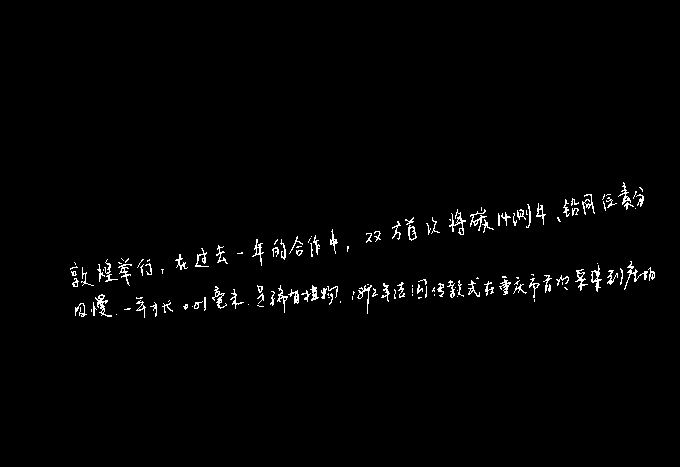 敦煌举行，在过去一年的合作中，双方首次将碳14测年、铅同位素分
慢.一年才长0.01毫米.是稀有植物.1892年法国传教士在重庆市首次采集到